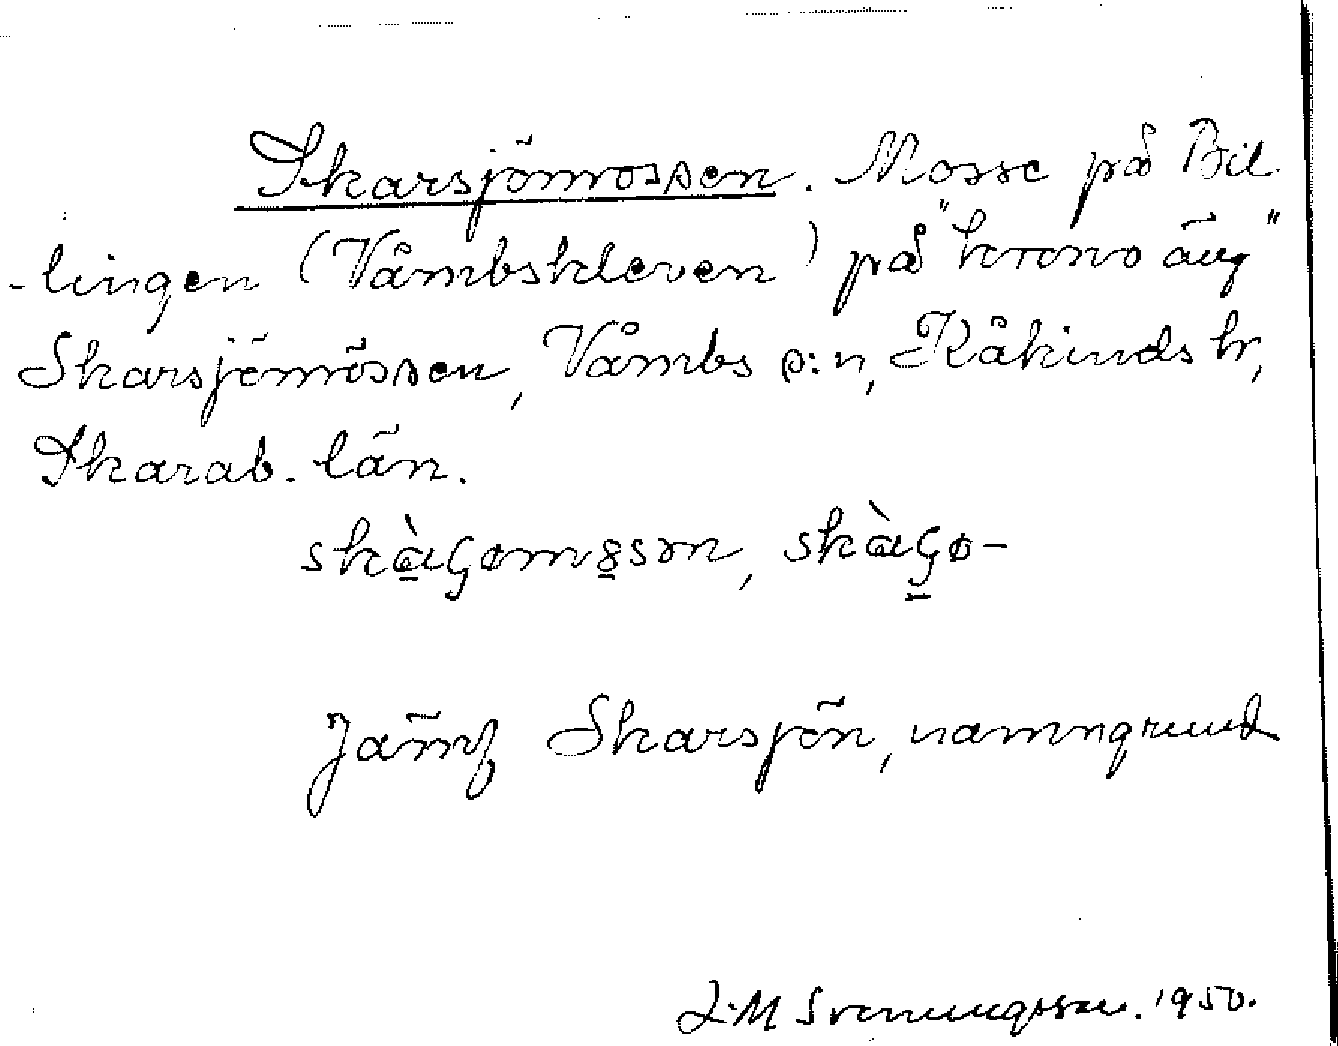 Skarsjömossen. Mosse på Bil
-lingen (Våmbskleven) på "krono äng"
Skarsjömossen, Våmbs s:n, Kåkinds hr,
Skarab. län.
skàʂomɷsən, skàʂo-
Jämf Skarsjön, namngrund
L.M Svenungsson. 1950.